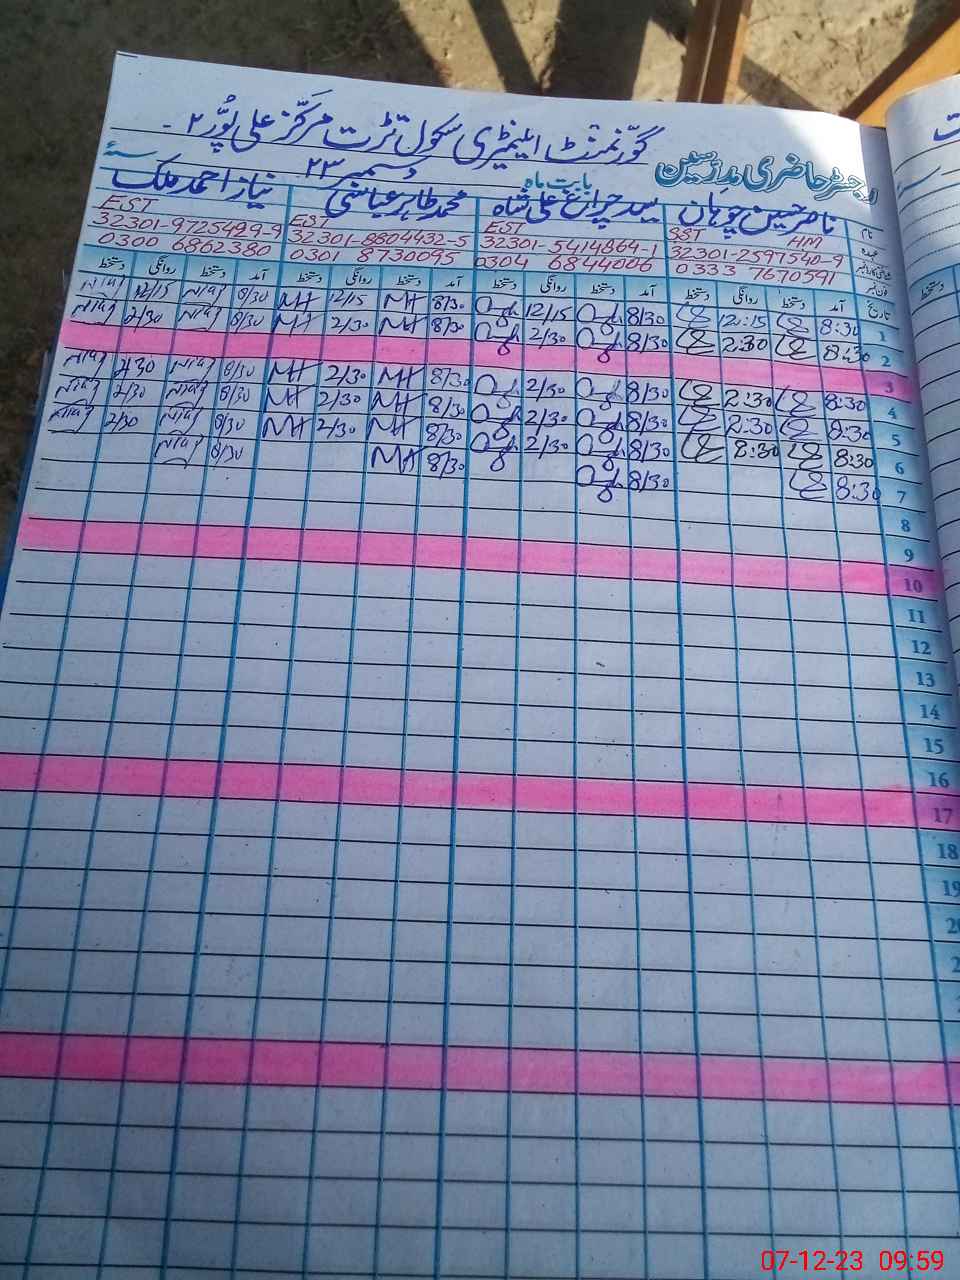 گورنمنٹ ایلیمنٹری سکول تڑت مرکز علی پور ۲۔
رجسٹر حاضری مدرسین بابت ماہ دسمبر ۲۳ سنہ
نام ناصر حسین چوہان سید چراغ علی شاہ محمد طاہر عباسی نیاز احمد ملک
عہدہ SST HM EST EST EST
32301-2597540-9 32301-5414864-1 32301-8804432-5 32301-9725499-9
0333 7670591 0304 6844006 0301 8730095 0300 6862380
تاریخ آمد دستخط روانگی دستخط آمد دستخط روانگی دستخط آمد دستخط روانگی دستخط آمد دستخط روانگی دستخط
1 8:30 12:15 8/30 12/15 8/30 MA 12/15 MA 8/30 12/15
2 8:30 2:30 8/30 2/30 8/30 MA 2/30 MA 8/30 2/30
3
4 8:30 2:30 8/30 2/30 8/30 MA 2/30 MA 8/30 2/30
5 8:30 2:30 8/30 2/30 8/30 MA 2/30 MA 8/30 2/30
6 8:30 8:30 8/30 2/30 8/30 MA 2/30 MA 8/30 2/30
7 8:30 8/30 8/30 MA 8/30
8
9
10
11
12
13
14
15
16
17
18
07-12-23 09:59